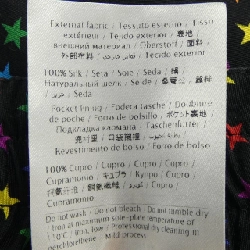 External fabric / Tessuto esterno / Tissu
extérieur / Tecido exterior / 表地
внешний материал / Oberstoff / 面料 /
外部布料 / Tejido exterior
100% Silk / Seta / Soie / Seda / 絹 /
Натуральный шелк / Seide /
/ Seda
Pocket lining / Fodera tasche / Doublure
de poche / Forro de bolsillo / ポケット裏地
Подкладка кармана / Taschenfutter /
Revestimento de bolso / Forro de bolso
100% Cupro / Cupro / Cupro / Cupro /
Cupramonium / キュプラ / Купро / Cupro /
Cupramonio
Do not wash / Do not bleach / Do not tumble dry
Iron at maximum sole-plate temperature of
110°C / Professional cleaning in
Mild process